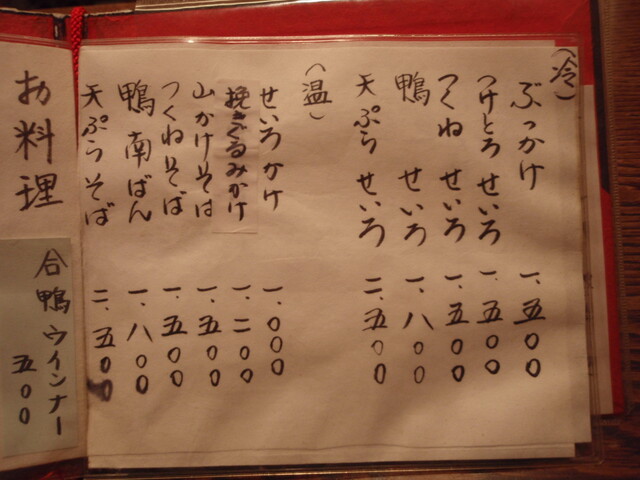 （冷）
ぶっかけ 一.五〇〇
つけとろ せいろ 一.五〇〇
つくね せいろ 一.五〇〇
鴨 せいろ 一.八〇〇
天ぷら せいろ 二.五〇〇
（温）
せいろかけ 一.〇〇〇
挽きぐるみかけ 一.二〇〇
山かけそば 一.五〇〇
つくねそば 一.五〇〇
鴨南ばん 一.八〇〇
天ぷらそば 二.五〇〇
お料理
合鴨ウインナー 五〇〇